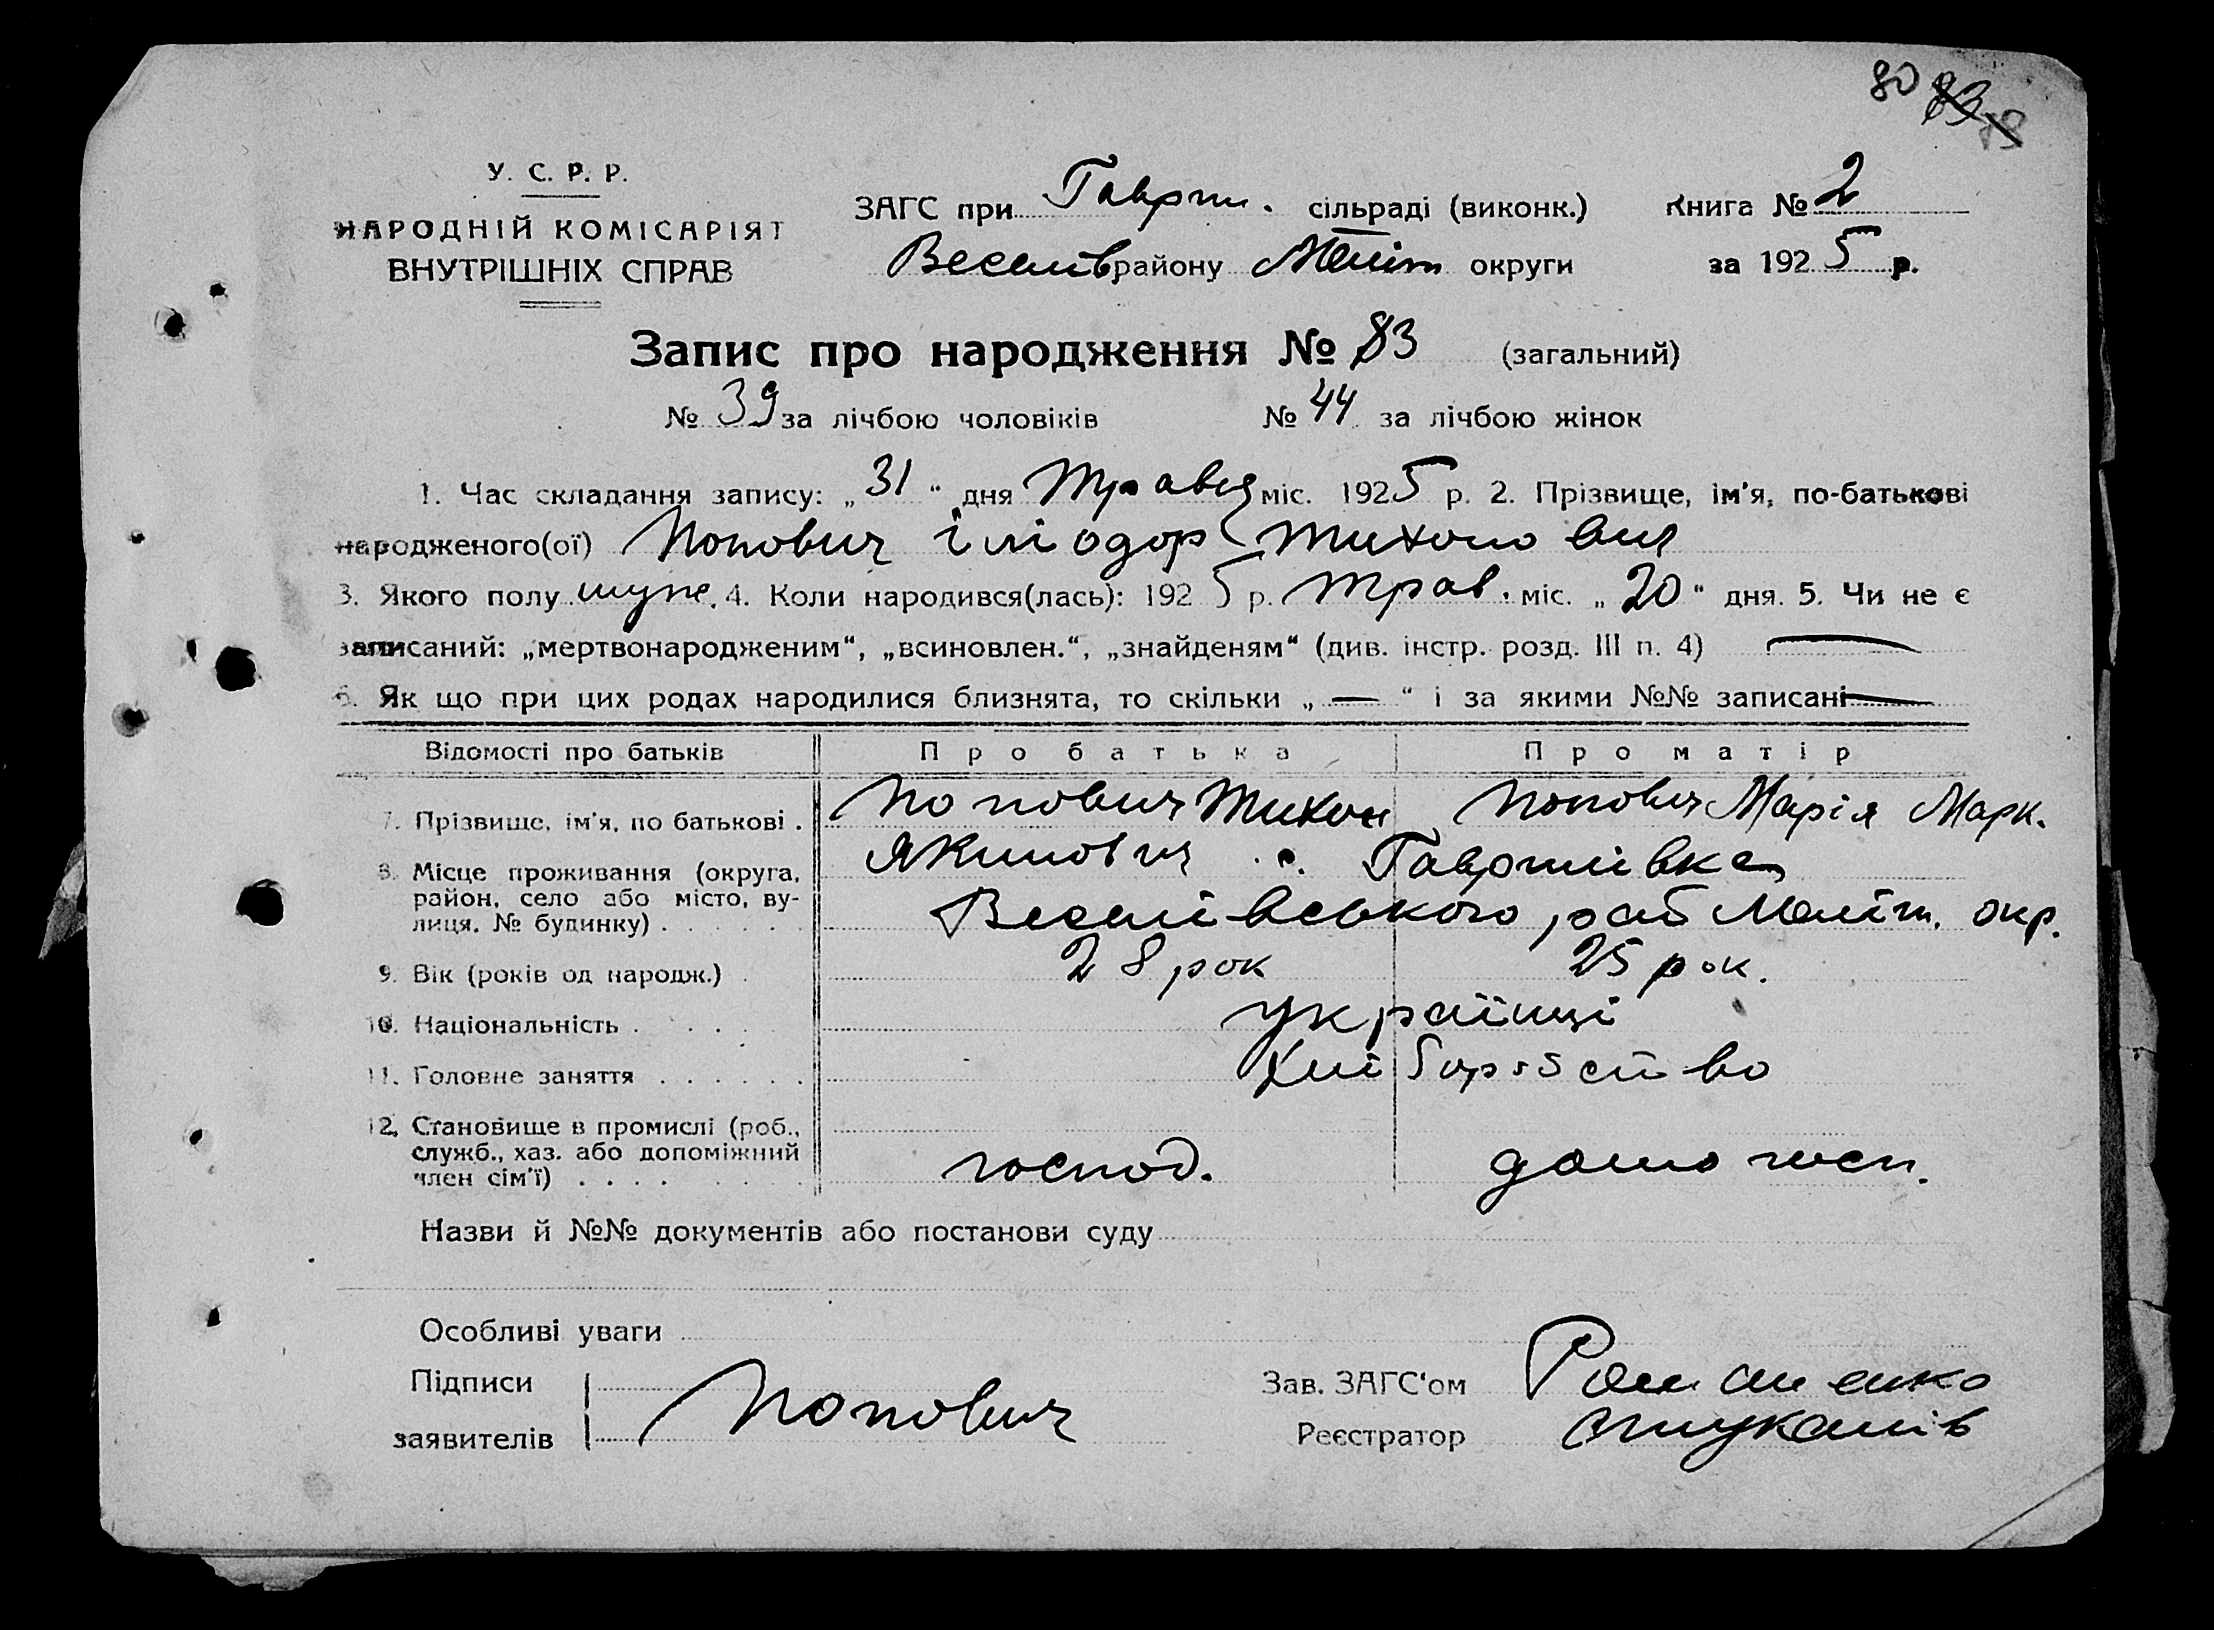 80 83 79
У. С. Р. Р.
НАРОДНІЙ КОМІСАРІЯТ
ВНУТРІШНІХ СПРАВ
ЗАГС при Гаврил. сільраді (виконк.) Книга № 2
Веселів району Меліт округи за 1925 р.
Запис про народження № 83 (загальний)
№ 39 за лічбою чоловіків № 44 за лічбою жінок
1. Час складання запису: „31“ дня Травня міс. 1925 р. 2. Прізвище, ім'я, по-батькові
народженого(ої) Попович Іліодор Тихонович
3. Якого полу муже. 4. Коли народився(лась): 1925 р. Трав. міс. „20“ дня. 5. Чи не є
записаний: „мертвонародженим“, „всиновлен.“, „знайденям“ (див. інстр. розд. III п. 4) —
6. Як що при цих родах народилися близнята, то скільки „—“ і за якими №№ записані —
Відомості про батьків Про батька Про матір
7. Прізвище, ім'я, по батькові . Попович Тихон Попович Марія Марк.
Якимович
8. Місце проживання (округа, район, село або місто, вулиця, № будинку) . . . . . . с. Гаврилівка
Веселівського рай Меліт. окр.
9. Вік (років од народж.) . 28 рок 25 рок.
10. Національність . . . . українці
11. Головне заняття . . . . . . Хліборобство
12. Становище в промислі (роб., служб., хаз. або допоміжний член сім'ї) . . . . господ. домогосп.
Назви й №№ документів або постанови суду
Особливі уваги
Підписи заявителів Попович
Зав. ЗАГС'ом Романенко
Реєстратор